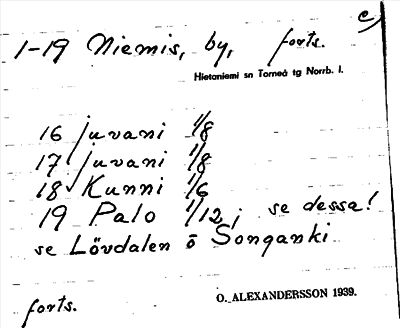 c)
1-19 Niemis, by, forts.
Hietaniemi sn Torneå tg Norrb. l.
16 Juvani 1/8
17 Juvani 1/8
18 Kunni 1/6
19 Palo 1/12 ; se dessa!
se Lövdalen ö Songanki
forts.
O. ALEXANDERSSON 1939.